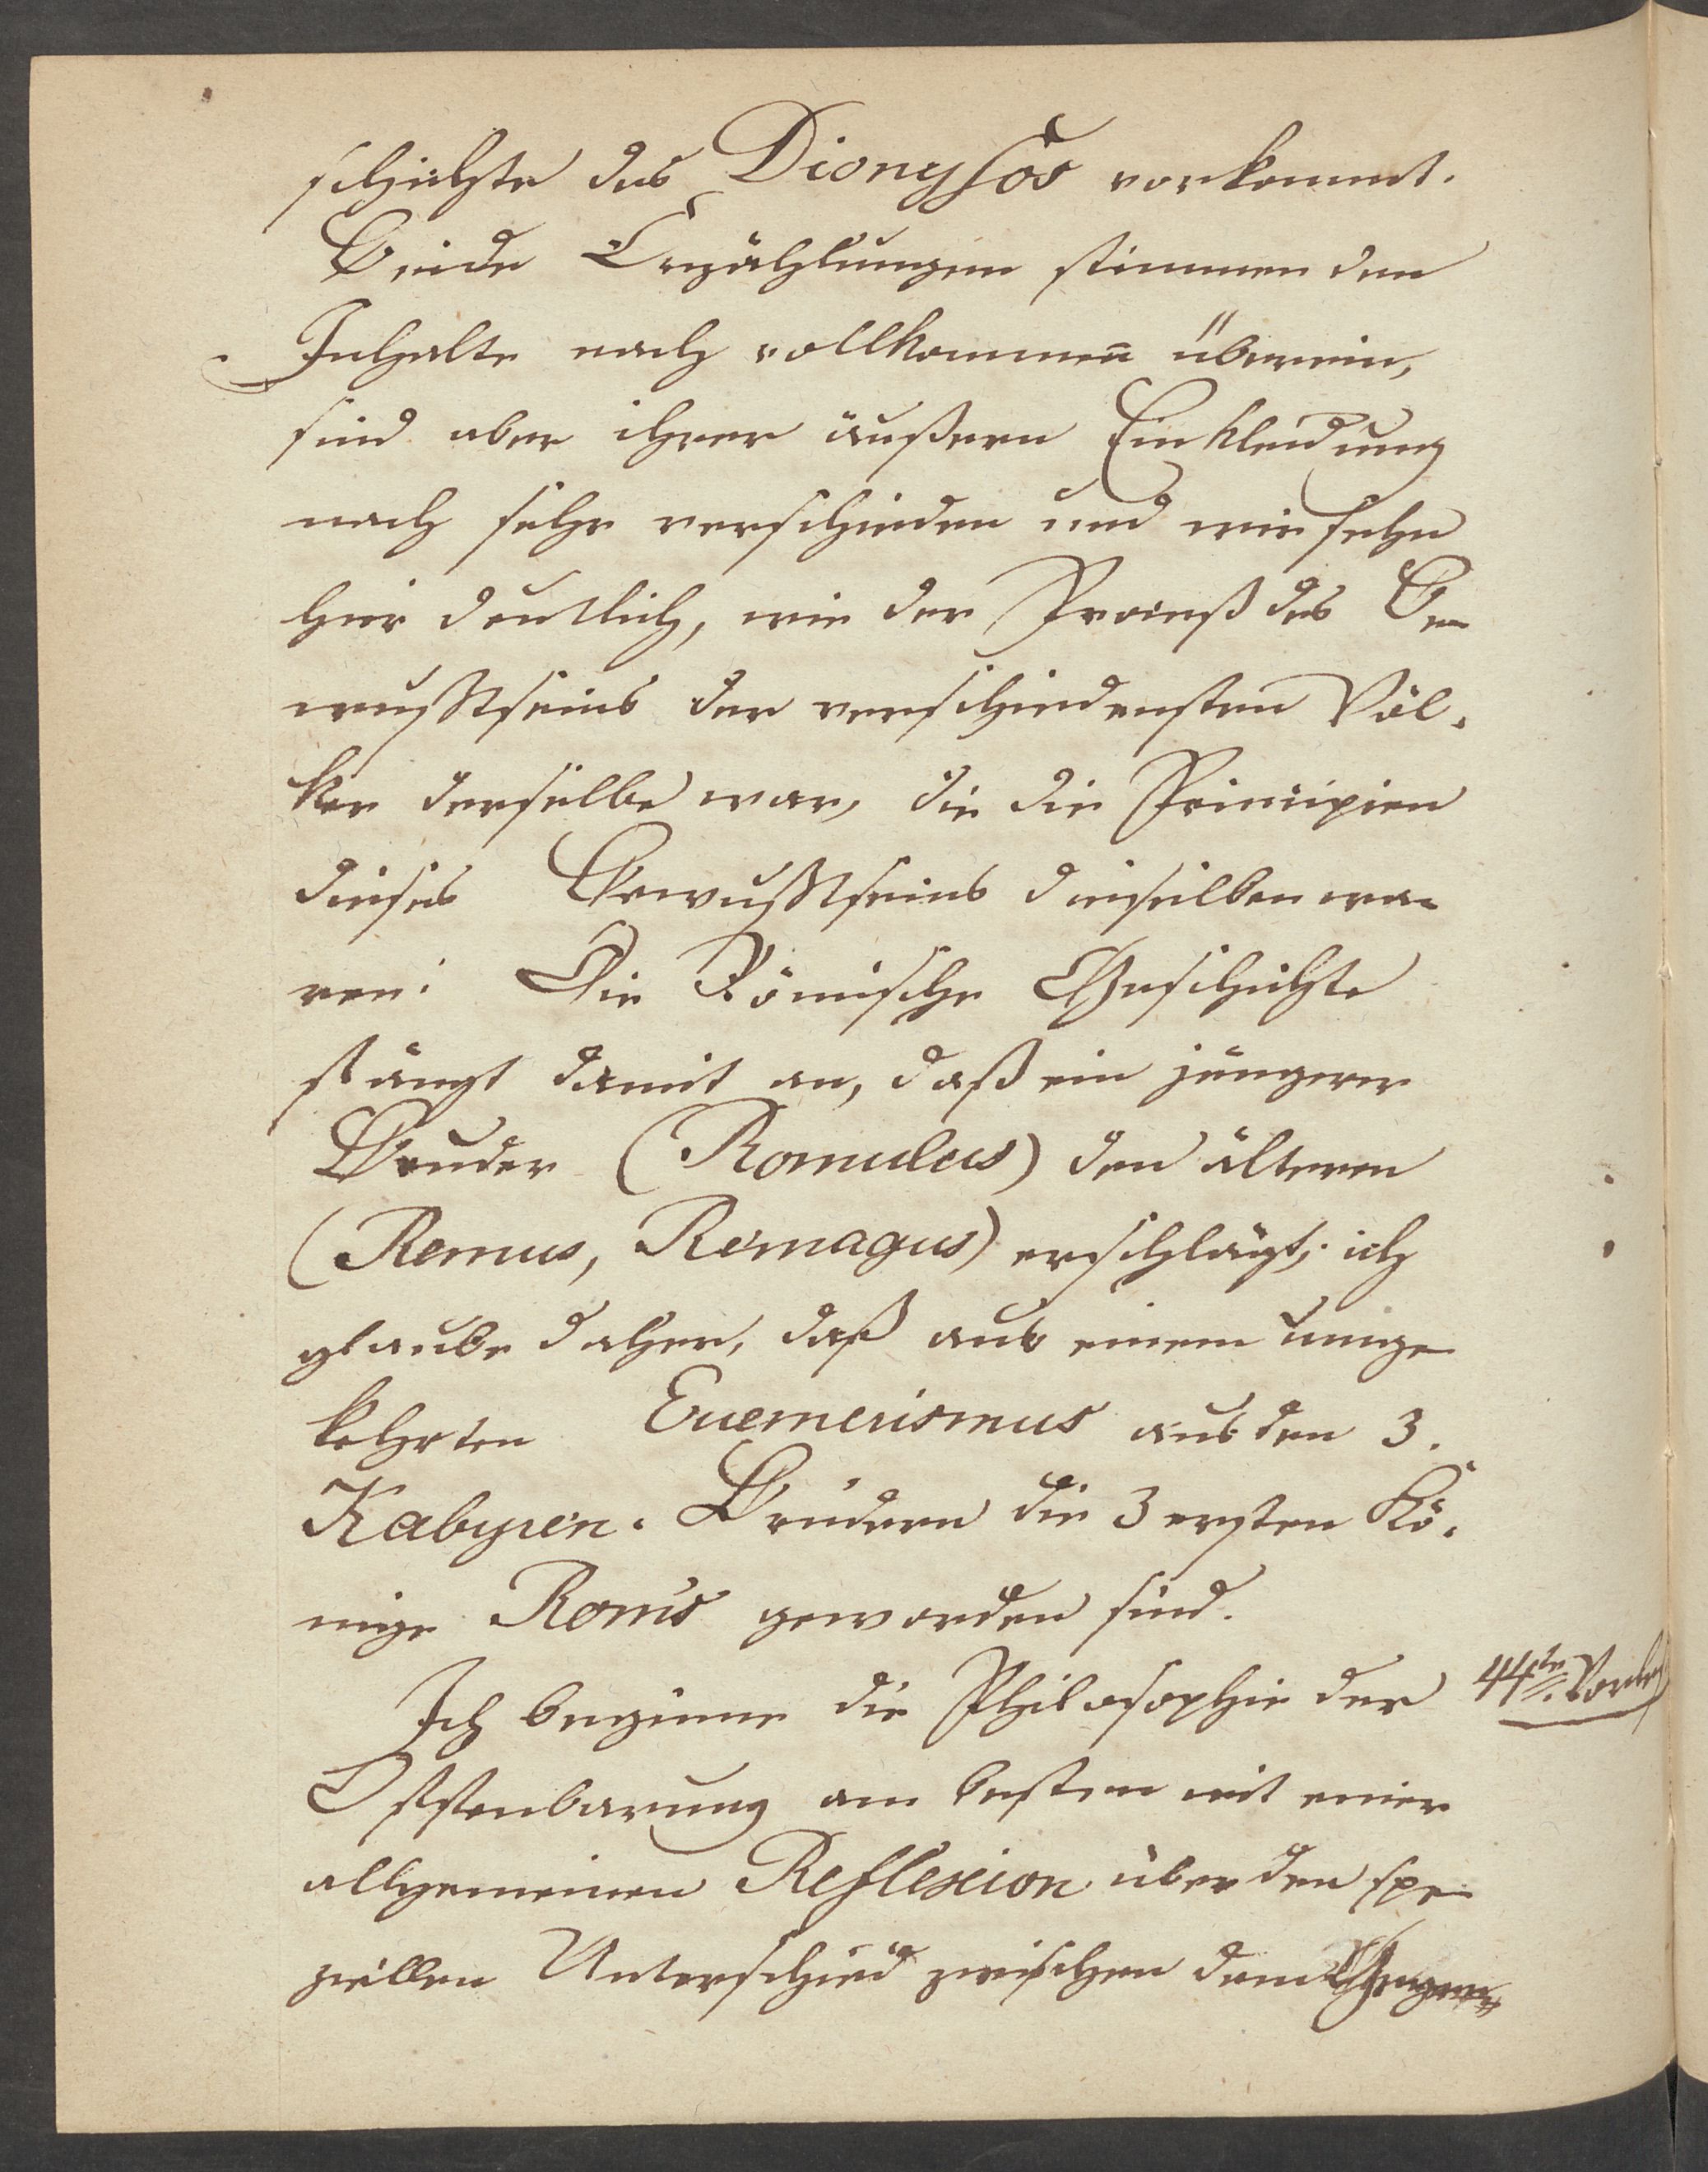 schichte des Dionysos vorkommt.
Beide Erzählungen stimmen dem
Inhalte nach vollkommen überein,
sind aber ihrer äußern Einkleidung
nach sehr verschieden und wir sehn
hier deutlich, wie der Proceß des Be-
wußtseins der verschiedensten Völ-
ker derselbe war, die die Principien
dieses Bewußtseins dieselben wa-
ren. Die Römische Geschichte
fängt damit an, daß ein jüngerer
Bruder (Romulus) den älteren
(Remus, Remagus) erschlägt; ich
glaube daher, daß aus einem umge-
kehrten Euemerismus aus den 3.
Kabyren-Brüdern die 3 ersten Kö-
nige Rom's geworden sind.
44te Vorles
Ich beginne die Philosophie der
Offenbarung am besten mit einer
allgemeinen Reflexion über den spe-
ziellen Unterschied zwischen dem